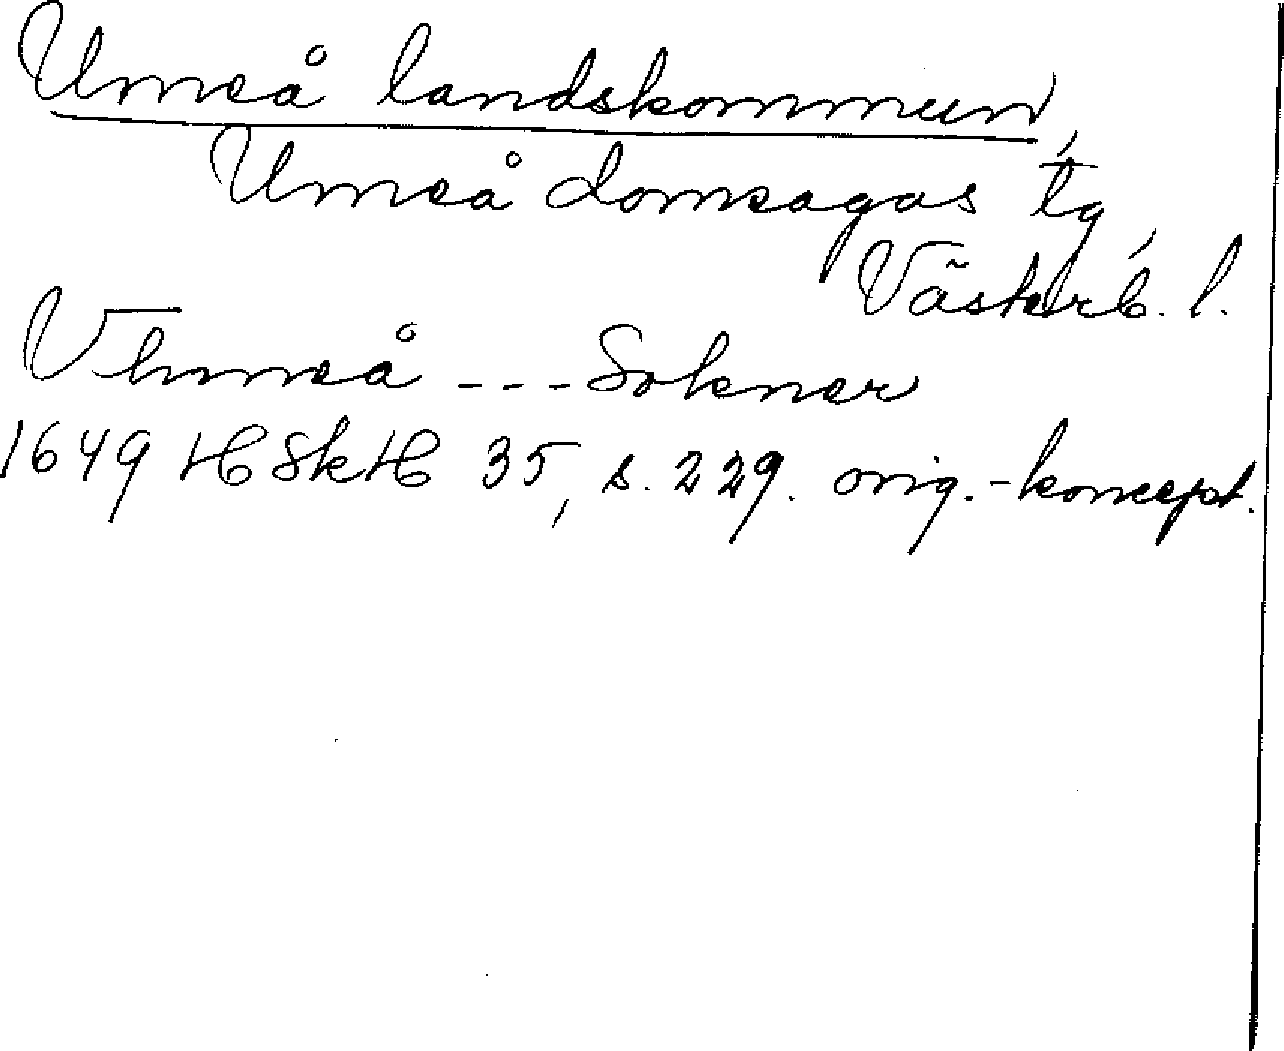 Umeå landskommun,
Umeå domsagas tg,
Västerb. l.
Vhmeå --- Sokner
1649 HSkH 35, s. 229. orig.-koncept.